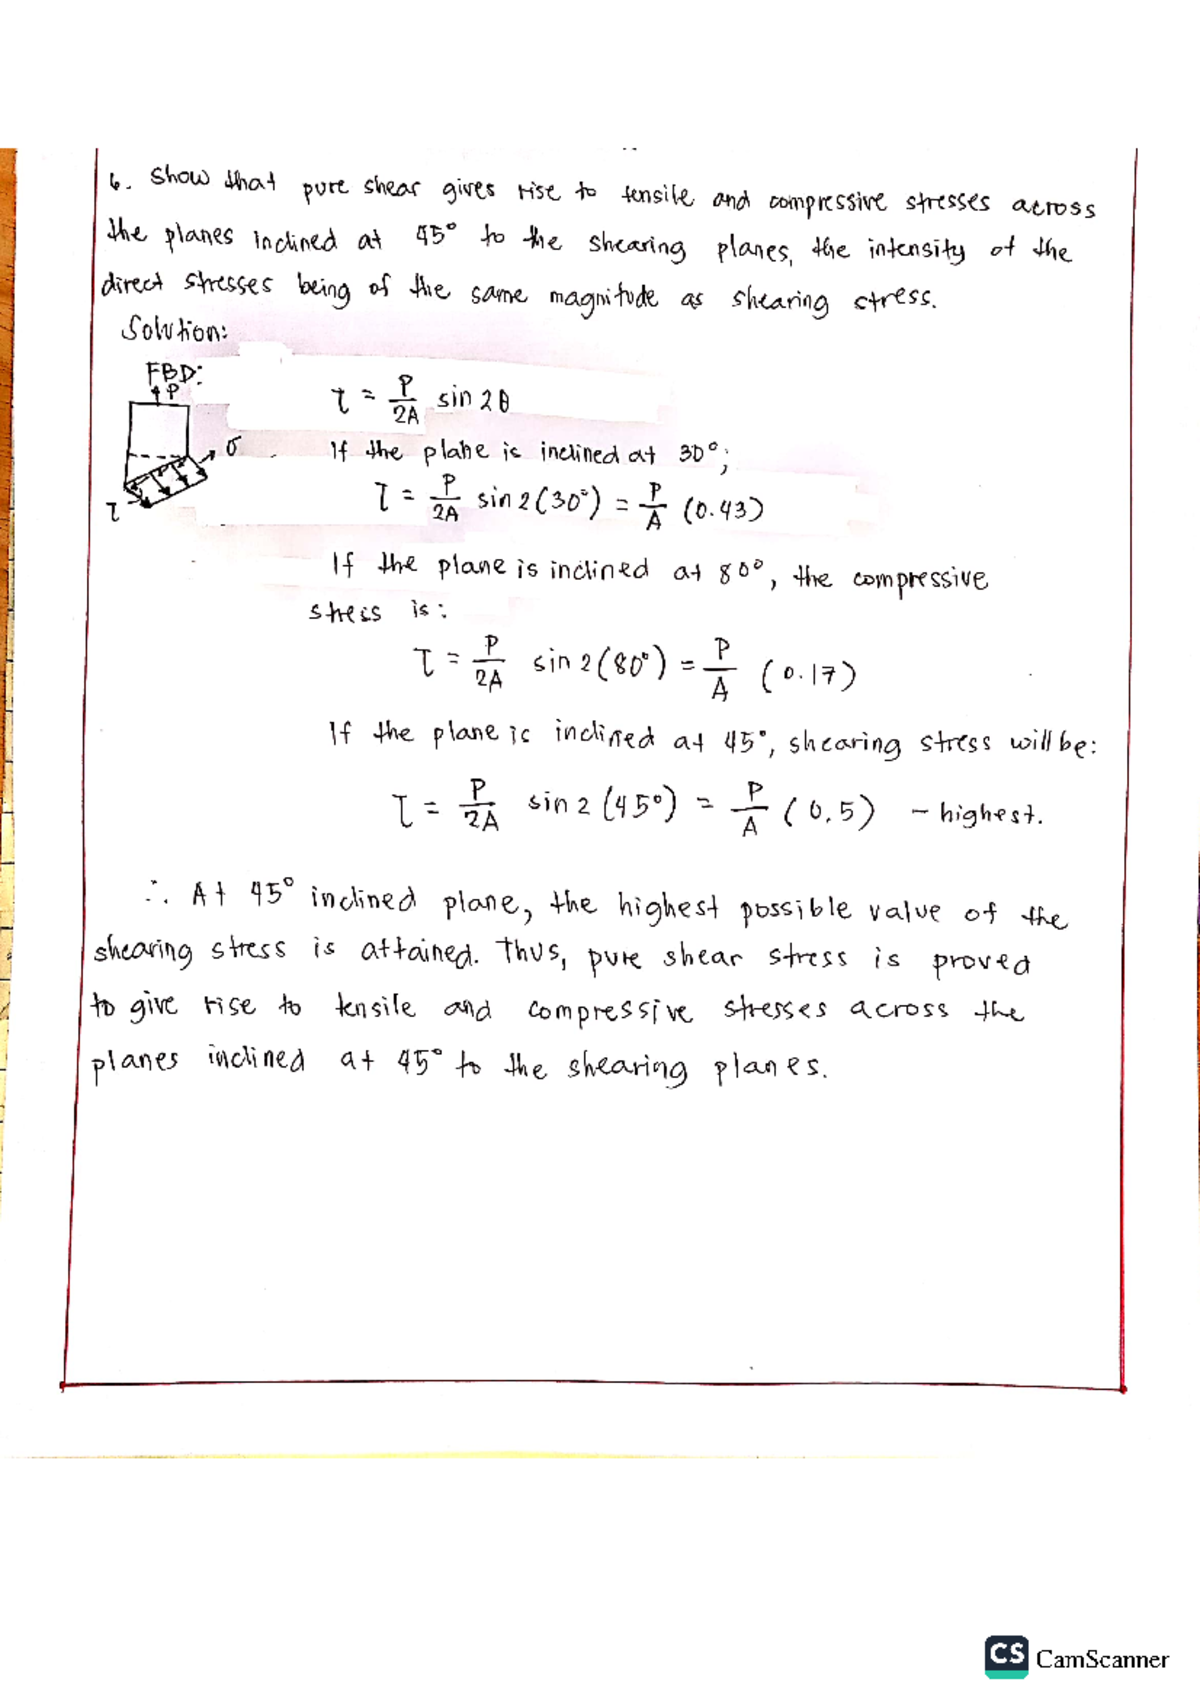 6. Show that pure shear gives rise to tensile and compressive stresses across
the planes inclined at 45° to the shearing planes, the intensity of the
direct stresses being of the same magnitude as shearing stress.
Solution:
FBD:
P
σ
τ
τ = P/2A sin 2θ
If the plane is inclined at 30°;
τ = P/2A sin 2(30°) = P/A (0.43)
If the plane is inclined at 80°, the compressive
stress is:
τ = P/2A sin 2(80°) = P/A (0.17)
If the plane is inclined at 45°, shearing stress will be:
τ = P/2A sin 2 (45°) = P/A (0.5) – highest.
∴ At 45° inclined plane, the highest possible value of the
shearing stress is attained. Thus, pure shear stress is proved
to give rise to tensile and compressive stresses across the
planes inclined at 45° to the shearing planes.
CS CamScanner